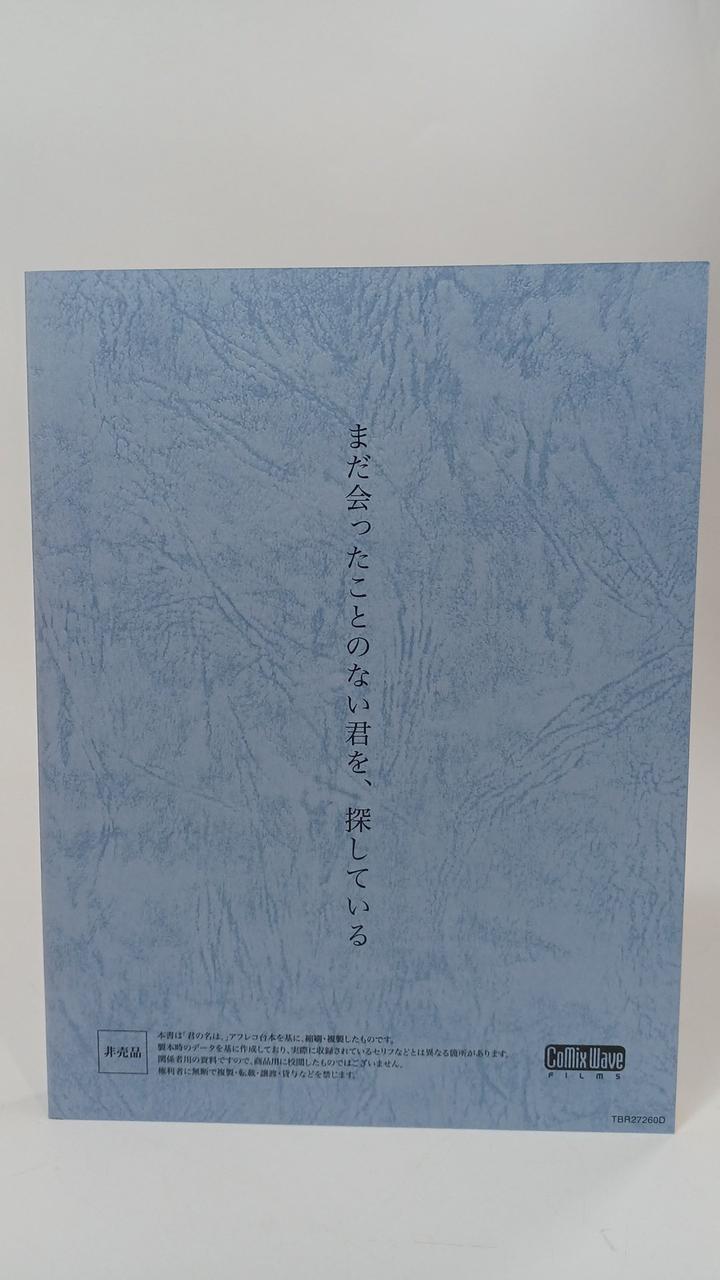 まだ会ったことのない君を、探している
非売品
本書は「君の名は。」アフレコ台本を基に、縮刷・複製したものです。
製本時のデータを基に作成しており、実際に収録されているセリフなどとは異なる箇所があります。
関係者用の資料ですので、商品用に校閲したものではございません。
権利者に無断で複製・転載・譲渡・貸与などを禁じます。
CoMix Wave
FILMS
TBR27260D